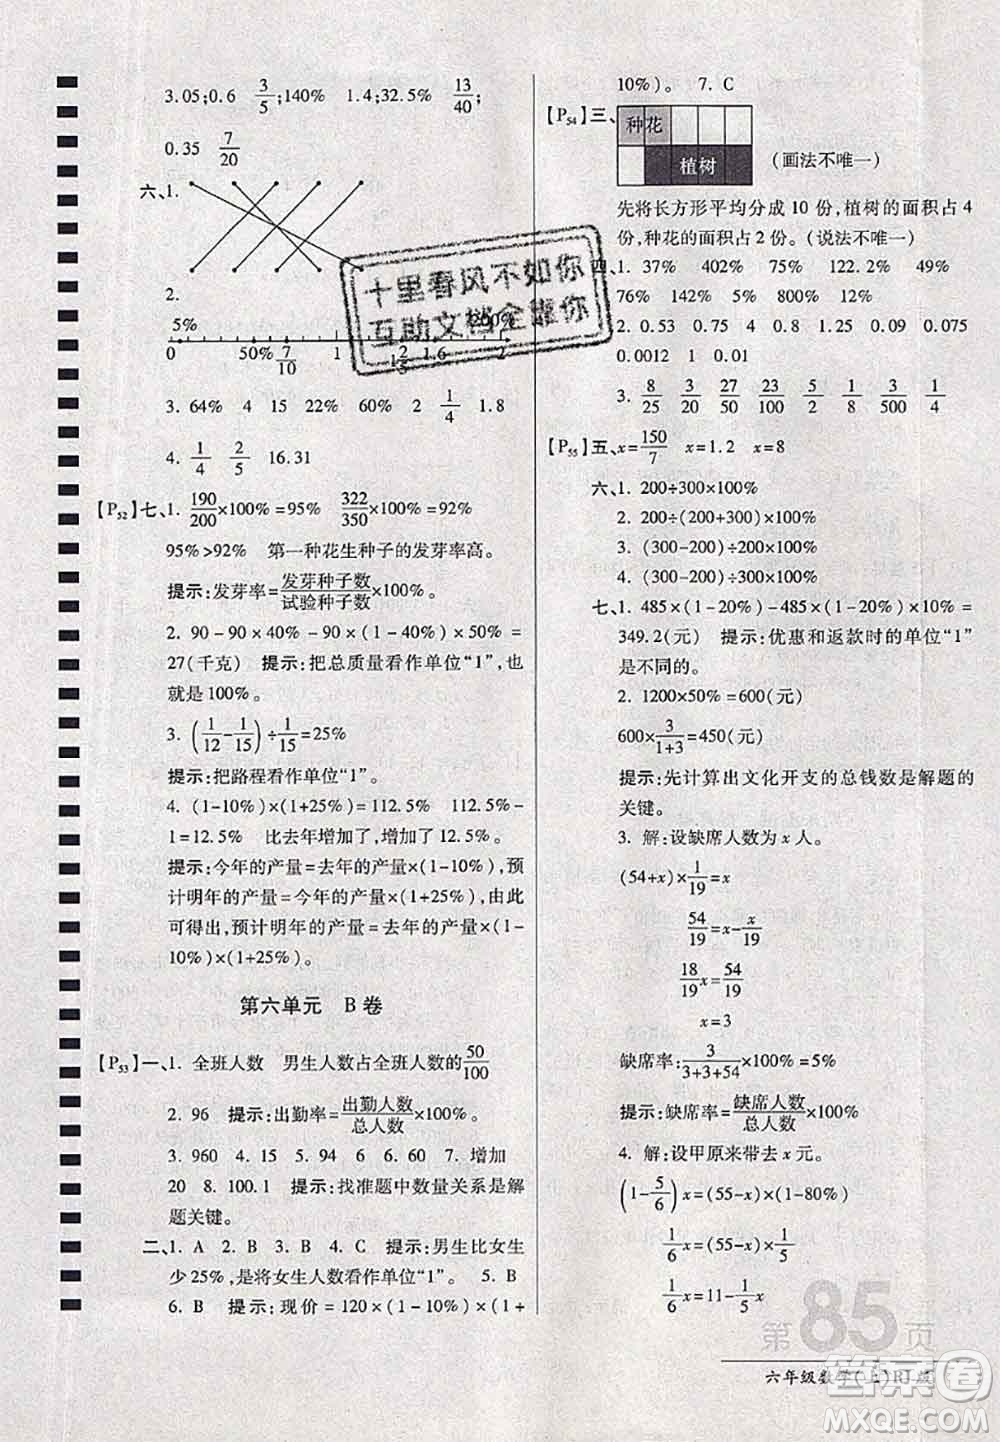 3.05;0.6  3/5;140%  1.4;32.5%  13/40;
0.35  7/20
六、1.
2.
5%  200%
0  50%  7/10  1  1 2/5  1.6  2
3. 64%  4  15  22%  60%  2  1/4  1.8
4. 1/4  2/5  16.31
【P52】七、1. 190/200×100%=95%  322/350×100%=92%
95%>92%  第一种花生种子的发芽率高。
提示:发芽率=发芽种子数/试验种子数×100%。
2. 90-90×40%-90×(1-40%)×
27(千克)  提示:把总质量看作单位“1”,也
就是100%。
3. (1/12-1/15)÷1/15=25%
提示:把路程看作单位“1”。
4. (1-10%)×(1+25%)=112.5%  112.5%-
1=12.5%  比去年增加了,增加了12.5%。
提示:今年的产量=去年的产量×(1-10%),预
计明年的产量=今年的产量×(1+25%),由此
可得出,预计明年的产量=去年的产量×(1-
10%)×(1+25%)。
第六单元  B卷
【P53】一、1. 全班人数  男生人数占全班人数的50/100
2. 96  提示:出勤率=出勤人数/总人数×100%。
3. 960  4. 15  5. 94  6. 60  7. 增加
20  8. 100.1  提示:找准题中数量关系是解
题关键。
二、1. A  2. B  3. B  4. C  提示:男生比女生
少25%,是将女生人数看作单位“1”。  5. B
6. B  提示:现价=120×(1-10%)×(1+
10%)。  7. C
【P54】三、
种花
植树
(画法不唯一)
先将长方形平均分成10份,植树的面积占4
份,种花的面积占2份。(说法不唯一)
四、1. 37%  402%  75%  122%  49%
76%  142%  800%  3%  130%
2. 0.53  0.75  4  0.09  0.075
0.0012  1  0.01
3. 8/25  3/20  27/50  23/100  5/2  1/8  3/400  1/4
【P55】五、x=150/7  x=1.2  x=8
六、1. 200÷300×100%
2. 200÷(200+300)×100%
3. (300-200)÷200×100%
4. (300-200)÷300×100%
七、1. 485×(1-20%)-485×(1-20%)×10%=
349.2(元)  提示:优惠和返款时的单位“1”
是不同的。
2. 1200×50%=600(元)
600×3/(1+3)=450(元)
提示:先计算出文化开支的总钱数是解题的
关键。
3. 解:设缺席人数为x人。
(54+x)×1/19=x
54/19=x-x/19
18/19x=54/19
x=3
缺席率:3/(3+3+54)×100%=5%
提示:缺席率=缺席人数/总人数×100%
4. 解:设甲原来带去x元。
(1-5/6)x=(55-x)×(1-80%)
1/6x=(55-x)×1/5
1/6x=11-1/5x
第85页
六年级数学(上)RJ版
十里春风不如你
互助文档全靠你
答案卷
MXQE.COM